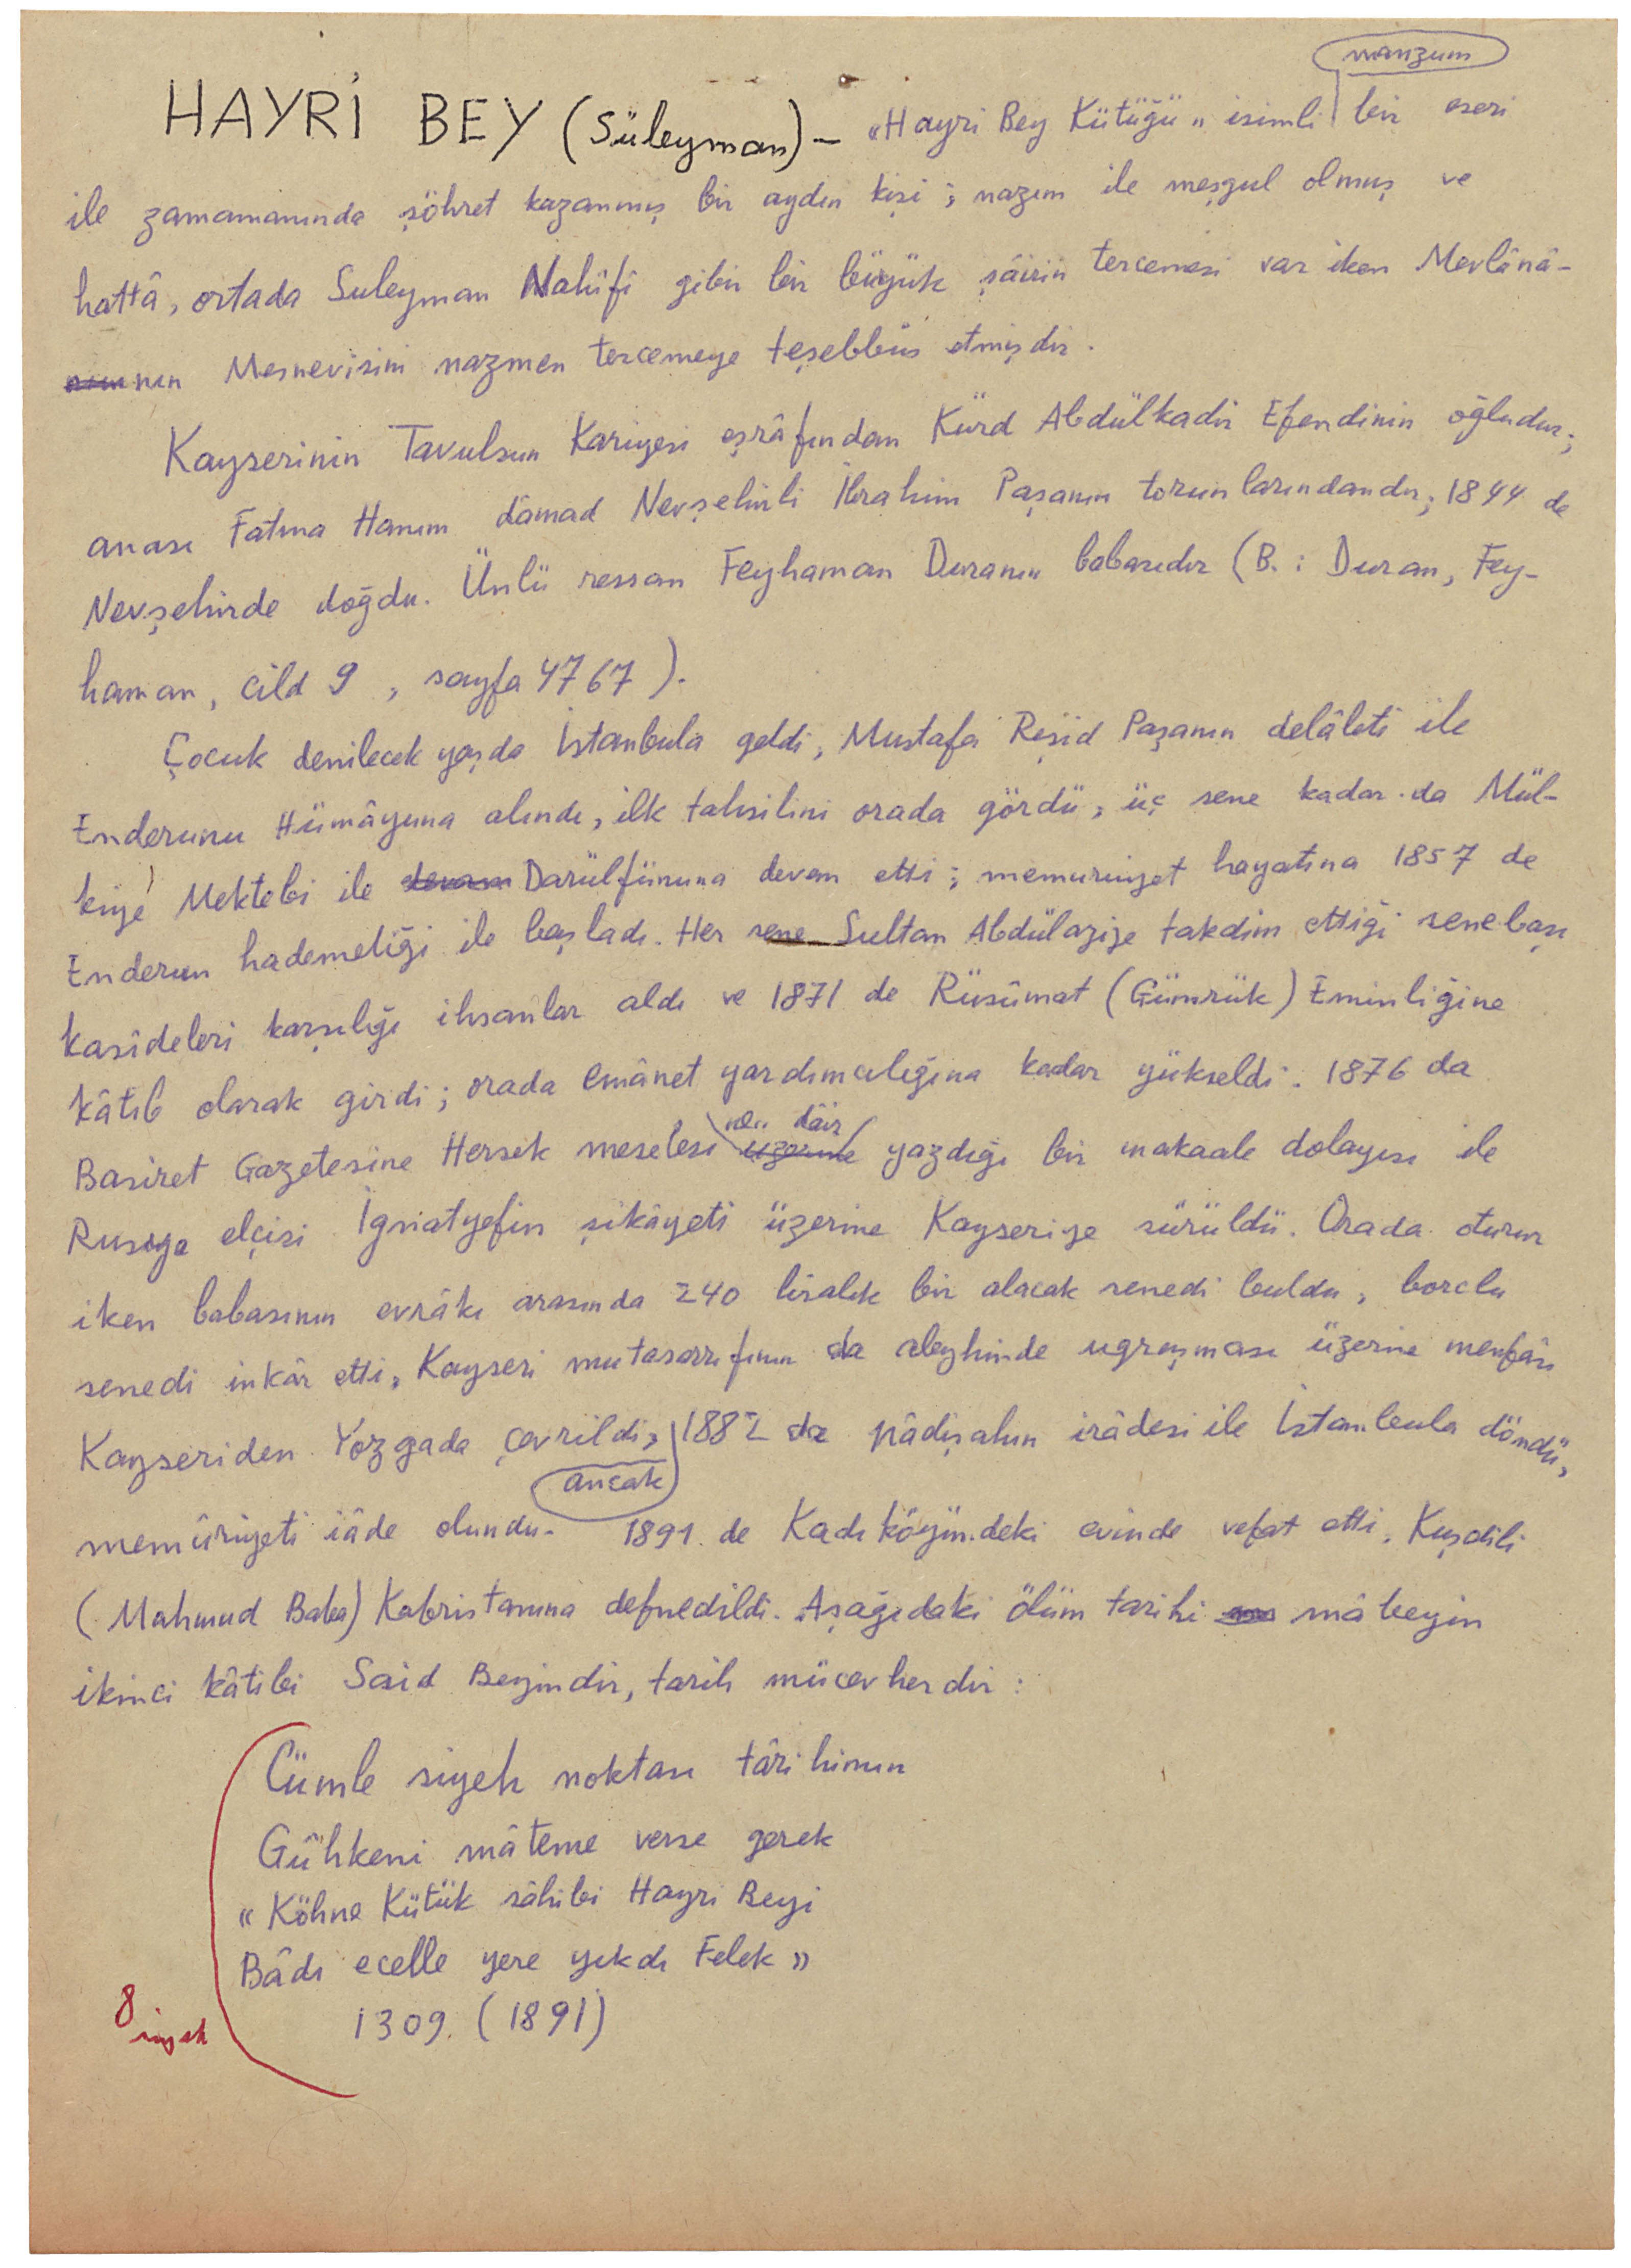 HAYRİ BEY (Süleyman) — «Hayri Bey Kütüğü» isimli manzum bir eseri
ile zamamanında şöhret kazanmış bir aydın kişi; nazım ile meşgul olmuş ve
hattâ, ortada Suleyman Nahifî gibi bir büyük şâirin tercemesi var iken Mevlânâ-
nın Mesnevisini nazmen tercemeye teşebbüs etmişdir.
Kayserinin Tavulsun Kariyesi eşrâfından Kürd Abdülkadir Efendinin oğludur;
anası Fatma Hanım dâmad Nevşehirli İbrahim Paşanın torunlarındandır; 1844 de
Nevşehirde doğdu. Ünlü ressam Feyhaman Duranın babasıdır (B.: Duran, Fey-
haman, cild 9, sayfa 4767).
Çocuk denilecek yaşda İstanbula geldi, Mustafa Reşid Paşanın delâleti ile
Enderunu Hümâyuna alındı, ilk tahsilini orada gördü, üç sene kadar da Mül-
kiye Mektebi ile Darülfünuna devam etti; memuriyet hayatına 1857 de
Enderun hademeliği ile başladı. Her sene Sultan Abdülazize takdim ettiği senebaşı
kasideleri karşılığı ihsanlar aldı ve 1871 de Rüsûmat (Gümrük) Eminliğine
kâtib olarak girdi; orada emânet yardımcılığına kadar yükseldi. 1876 da
Basiret Gazetesine Hersek meselesine dâir yazdığı bir makaale dolayısı ile
Rusya elçisi İgniatyefin şikâyeti üzerine Kayseriye sürüldü. Orada oturur
iken babasının evrâkı arasında 240 liralık bir alacak senedi buldu, borclu
senedi inkâr etti, Kayseri mutasarrıfının da aleyhinde ugraşması üzerine menfâsı
Kayseriden Yozgada çevrildi, ancak 1882 da pâdişahın irâdesi ile İstanbula döndü,
memûriyeti iâde olundu. 1891. de Kadıköyündeki evinde vefat etti, Kuşdili
(Mahmud Baba) Kabristanına defnedildi. Aşağıdaki ölüm tarihi mâbeyin
ikinci kâtibi Said Beyindir, tarih mücevherdir:
Cümle siyeh noktası târihinın
Gühkeni mâteme verse gerek
«Köhne Kütük sâhibi Hayri Beyi
Bâdı ecelle yere yıkdı Felek»
1309. (1891)
8
siyah